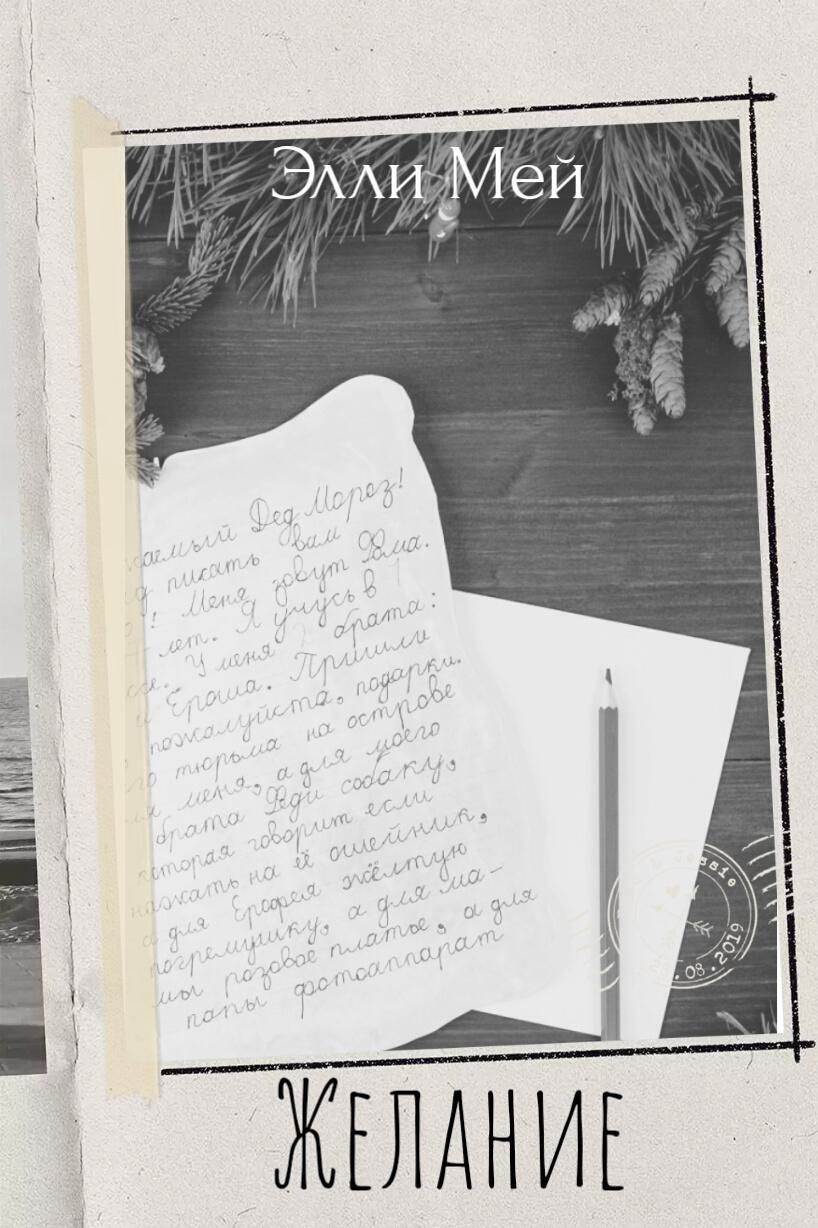 Элли Мей
жаемый Дед Мороз!
д писать вам
о! Меня зовут Рома.
7 лет. Я учусь в 1
ссе. У меня 2 брата:
и Ероша. Пришли
пожалуйста, подарки.
го тюрьма на острове
ля меня, а для моего
брата Феди собаку,
которая говорит если
нажать на её ошейник,
а для Ерофея жёлтую
погремушку, а для ма-
мы розовое платье, а для
папы фотоаппарат
& Jessie
08.2019
ЖЕЛАНИЕ